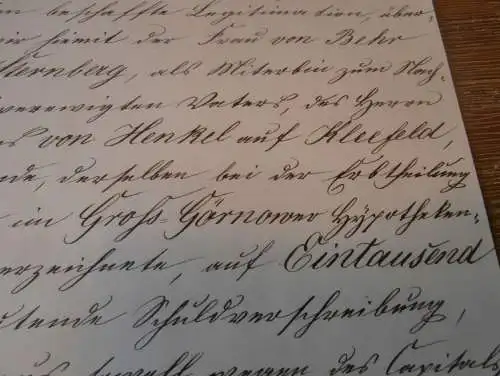 en beschaffte Legitimation, über-
wir hiemit der Frau von Behr
Sternberg, als Miterbin zum Nach-
verewigten Vaters, des Herrn
von Henkel auf Kleefeld,
derselben bei der Erbtheilung
im Gross Görnower Hypotheken-
verzeichnete, auf Eintausend
lautende Schuldverschreibung,
sowohl wegen des Capitals